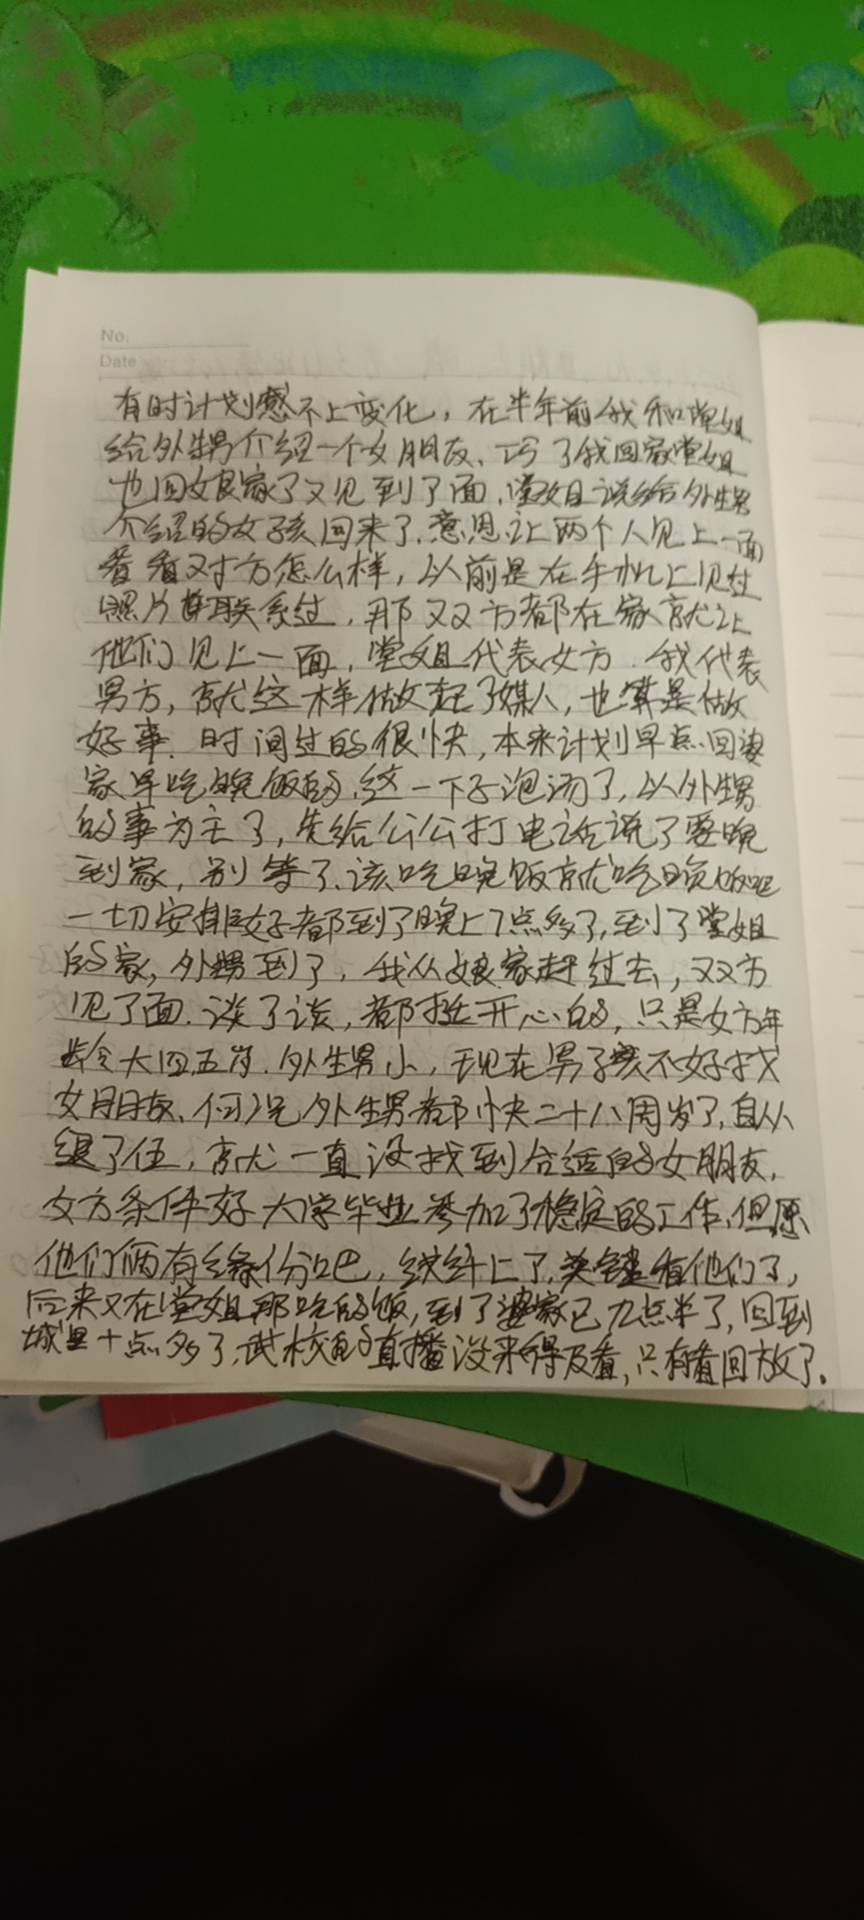 No.
Date
有时计划感不上变化，在半年前我和堂姐
给外甥介绍一个女朋友、巧了我回家堂姐
也回娘家了又见到了面，堂姐说给外甥
介绍的女孩回来了.意思让两个人见上一面
看看对方怎么样，以前是在手机上见过
照片联系过，那双方都在家就让
他们见上一面，堂姐代表女方.我代表
男方，就这样做起了媒人，也算是做
好事.时间过的很快，本来计划早点回婆
家早吃晚饭的.这一下子泡汤了，以外甥
的事为主了，先给公公打电话说了要晚
到家，别等了.该吃晚饭就吃晚饭吧
一切安排好都到了晚上7点多了，到了堂姐
的家，外甥到了，我从娘家赶过去，双方
见了面.谈了谈，都挺开心的，只是女方年
龄大四五岁.外甥小，现在男孩不好找
女朋友、何况外甥都快二十八周岁了，自从
退了伍，就一直没找到合适的女朋友，
女方条件好大学毕业参加了稳定的工作，但愿
他们俩有缘份吧，线纤上了，关键看他们了，
后来又在堂姐那吃的饭，到了婆家已九点半了，回到
城里十点多了，武校的直播没来得及看，只有看回放了。